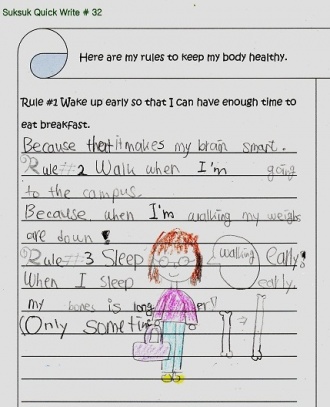 Suksuk Quick Write # 32
Here are my rules to keep my body healthy.
Rule #1 Wake up early so that I can have enough time to
eat breakfast.
Because that it makes my brain smart.
Rule #2 Walk when I'm going
to the campus.
Because when I'm walking my weighs
are down!
Rule #3 Sleep early!
walking
When I sleep early
my bones is longer!
(Only sometim